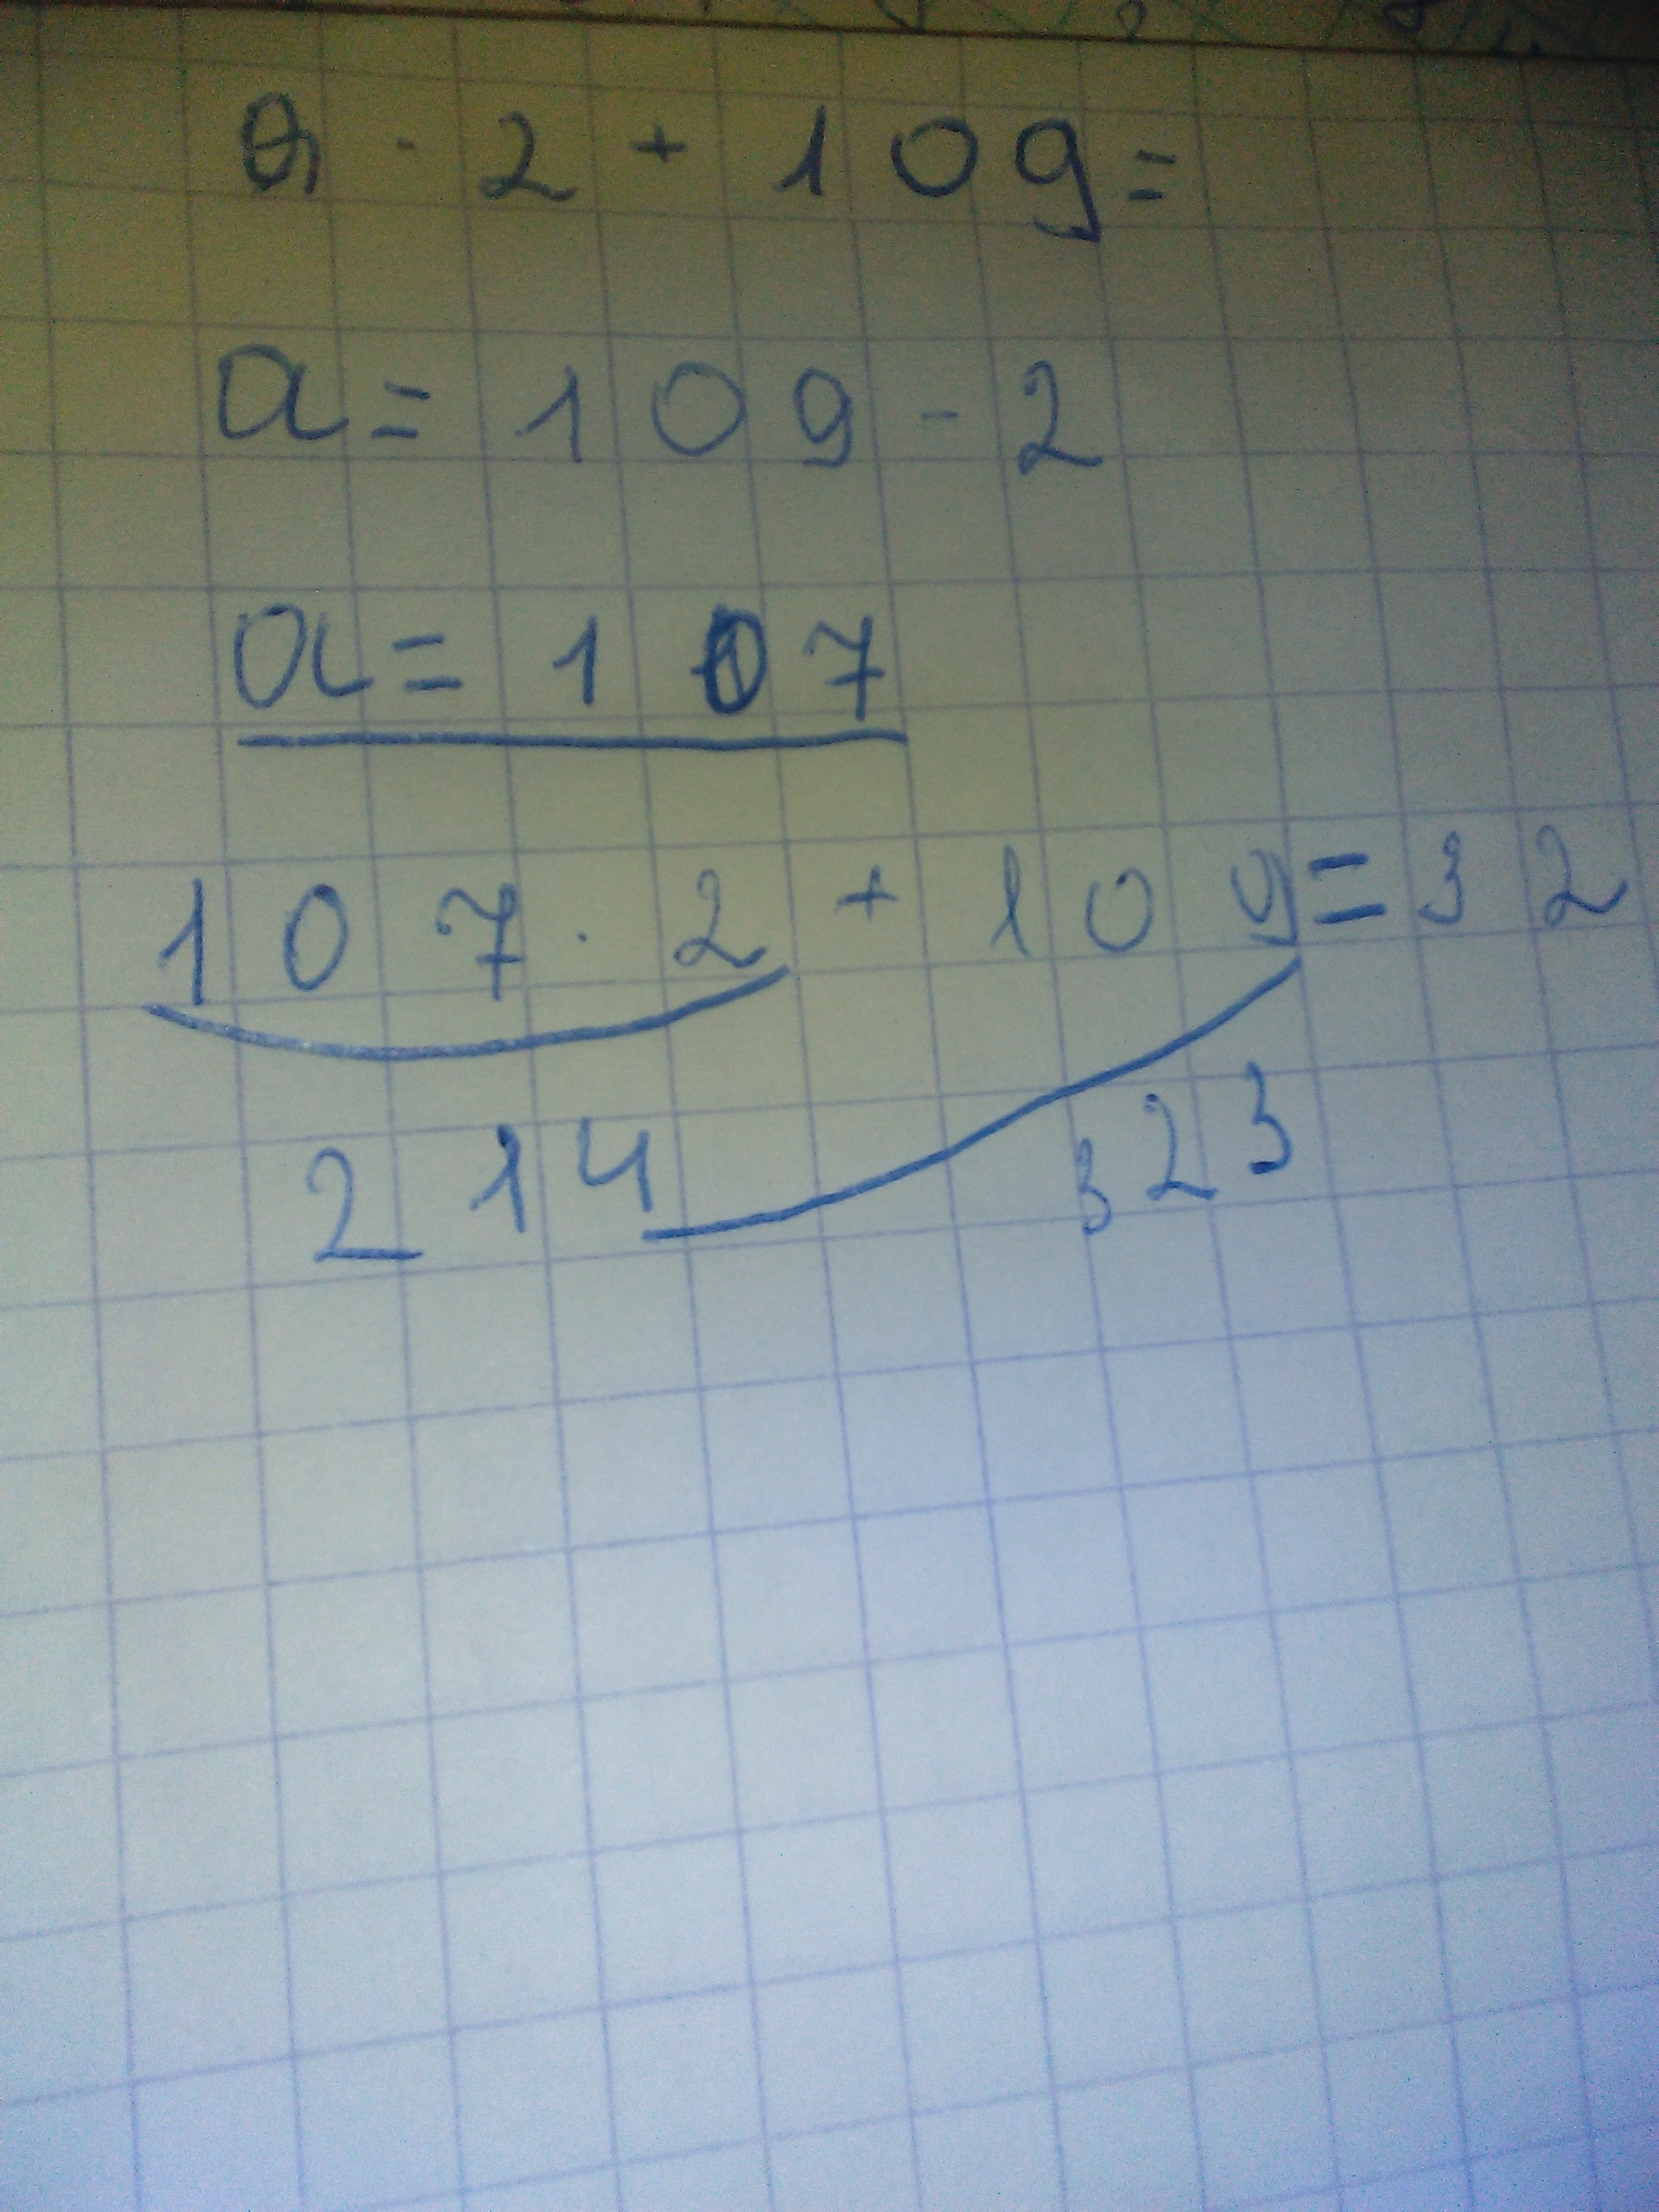 a · 2 + 109 =
a = 109 - 2
a = 107
107 · 2 + 109 = 32
214 323